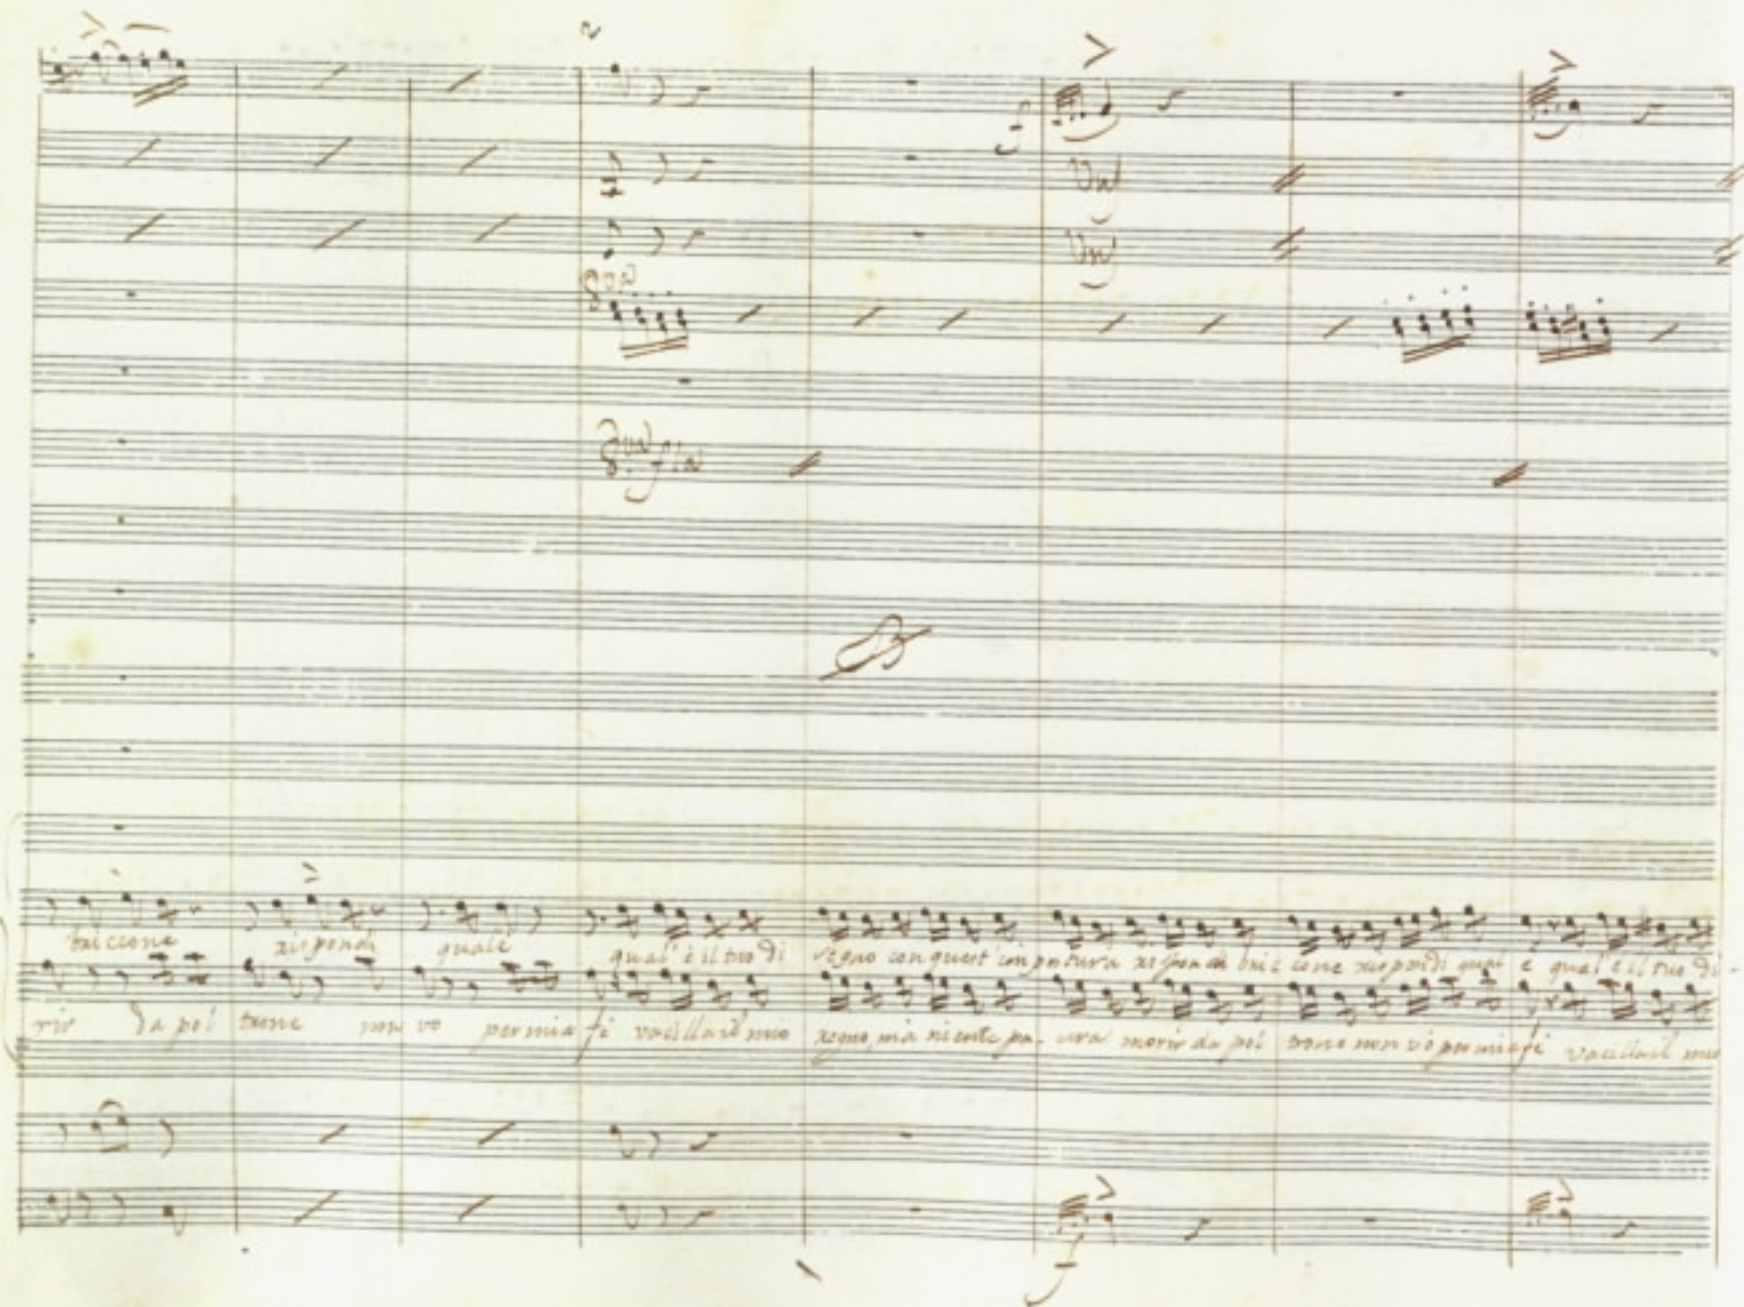 2
f
Vni
Vni
8va
8va fla
briccone rispondi quale qual' è il tuo di segno con quest' impostura rispondi bric cone rispondi qual è qual' è il tuo di -
rir da pol trone non vo per mia fè vacilla il mio regno, ma niente pa - ura morir da pol trone non vò per mia fè vacilla il mio
f